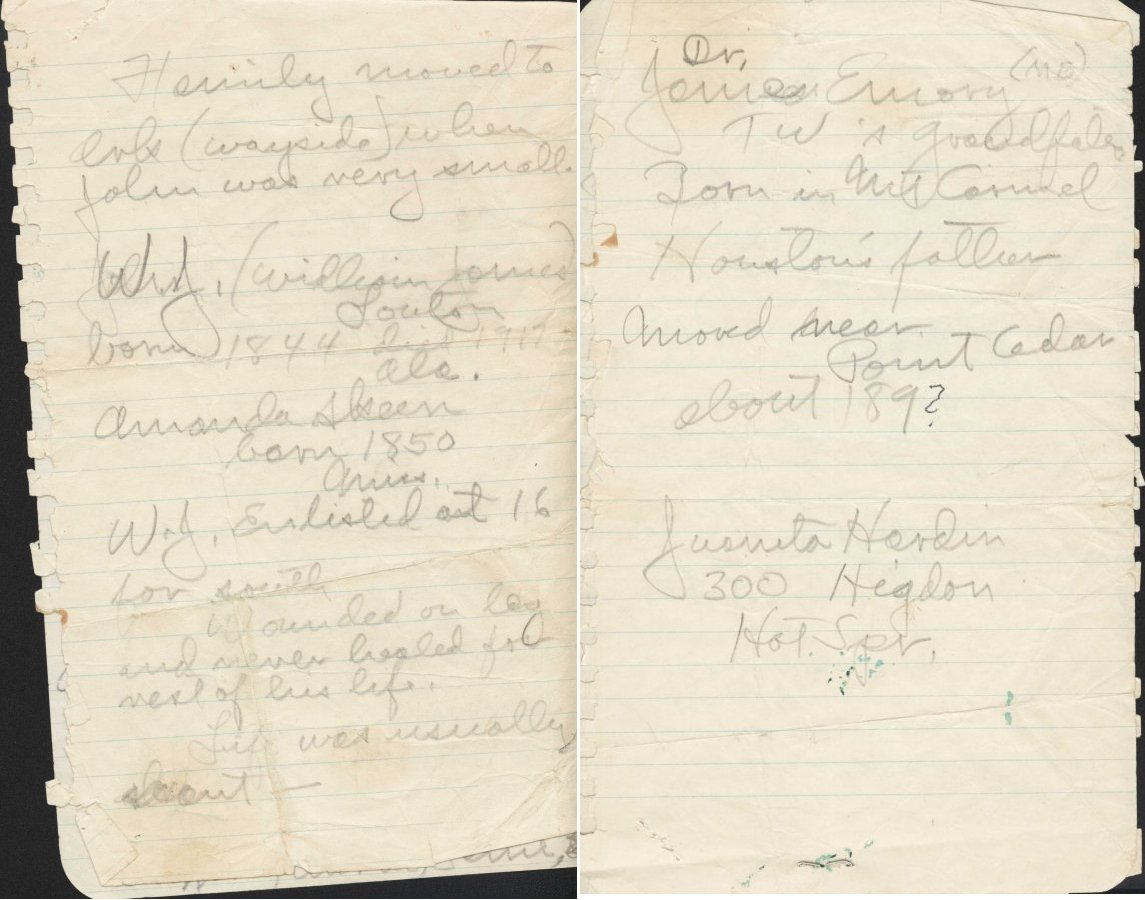 Family moved to
Ark (wayside) when
John was very small.
W.J. (William James)
Louton
born 1844 1917
Ala.
Amanda Skeen
born 1850
Miss.
W.J. Enlisted at 16
for south
Wounded on leg
and never healed for
rest of his life.
Life was usually
short —
Dr,
James Emory (MD)
TW 's grandfather
Born in Mt Carmel
Houston's father
Moved near
Point Cedar
about 189?
Juanita Hardin
300 Higdon
Hot. Spr.